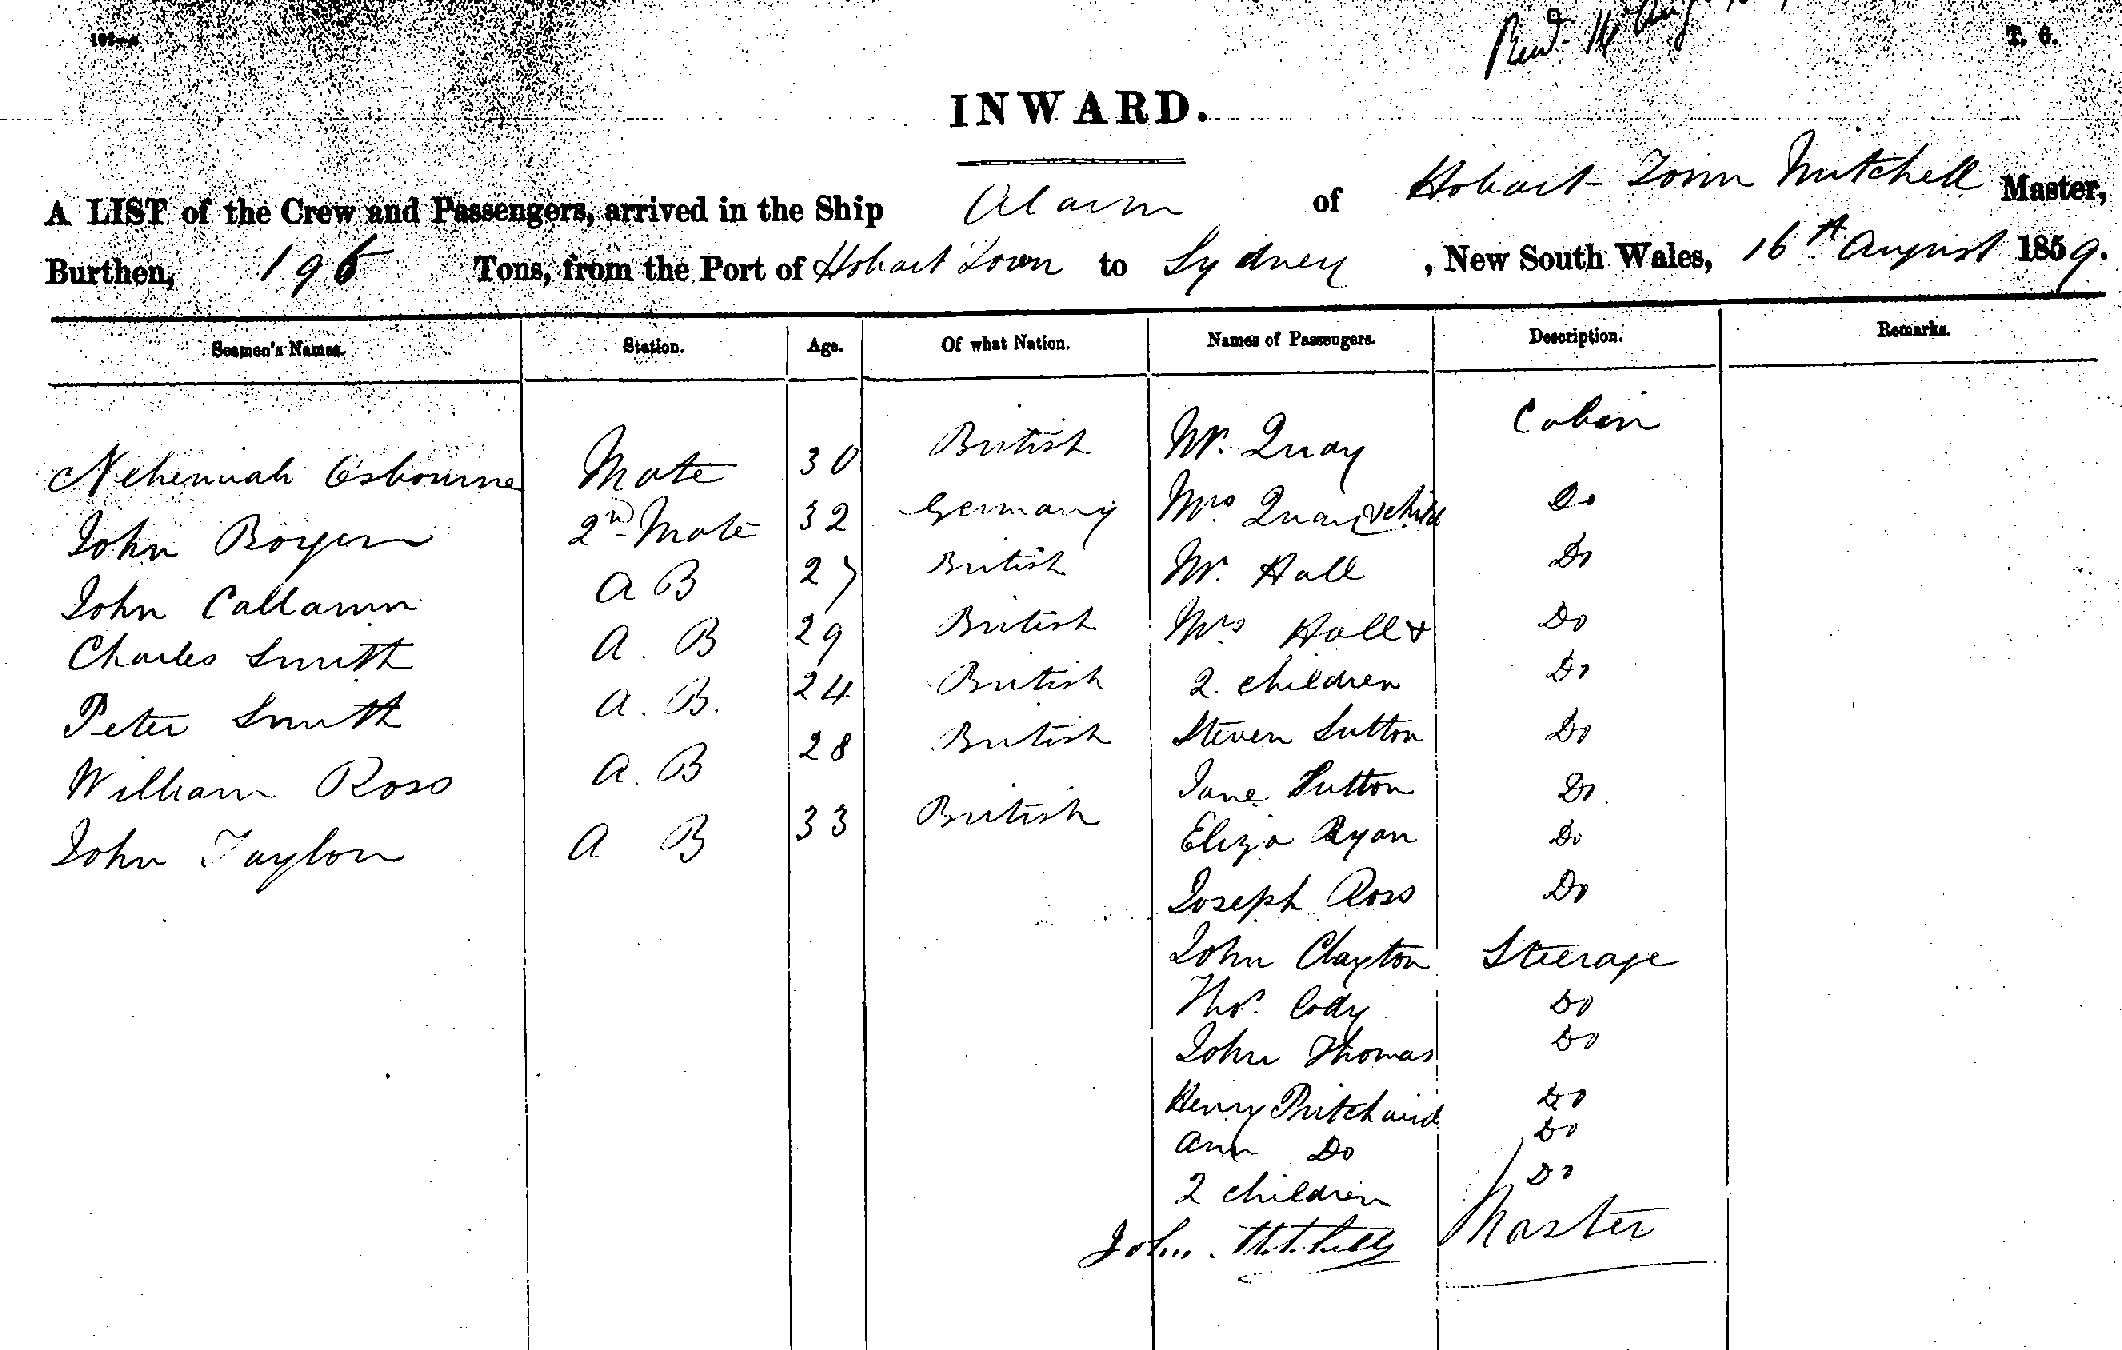 Recd. 16 Aug
T. G.
INWARD.
A LIST of the Crew and Passengers, arrived in the Ship Alarm of Hobart Town Mitchell Master,
Burthen, 196 Tons, from the Port of Hobart Town to Sydney, New South Wales, 16th August 1859.
Seamen's Names. Station. Age. Of what Nation. Names of Passengers. Description. Remarks.
Nehemiah Osbourne Mate 30 British Mr. Quay Cabin
John Boyen 2nd Mate 32 Germany Mrs Quay & child Do
John Callamn A B 27 British Mr. Hall Do
Charles Smith A. B 29 British Mrs Hall & Do
Peter Smith A. B. 24 British 2 children Do
William Ross A. B 28 British Steven Sutton Do
John Taylor A B 33 British Jane Sutton Do.
Eliza Ryan Do
Joseph Ross Do
John Clayton Steerage
Thos. Cody Do
John Thomas Do
Henry Pritchard Do
Ann Do Do
2 children Do
John Mitchell Master